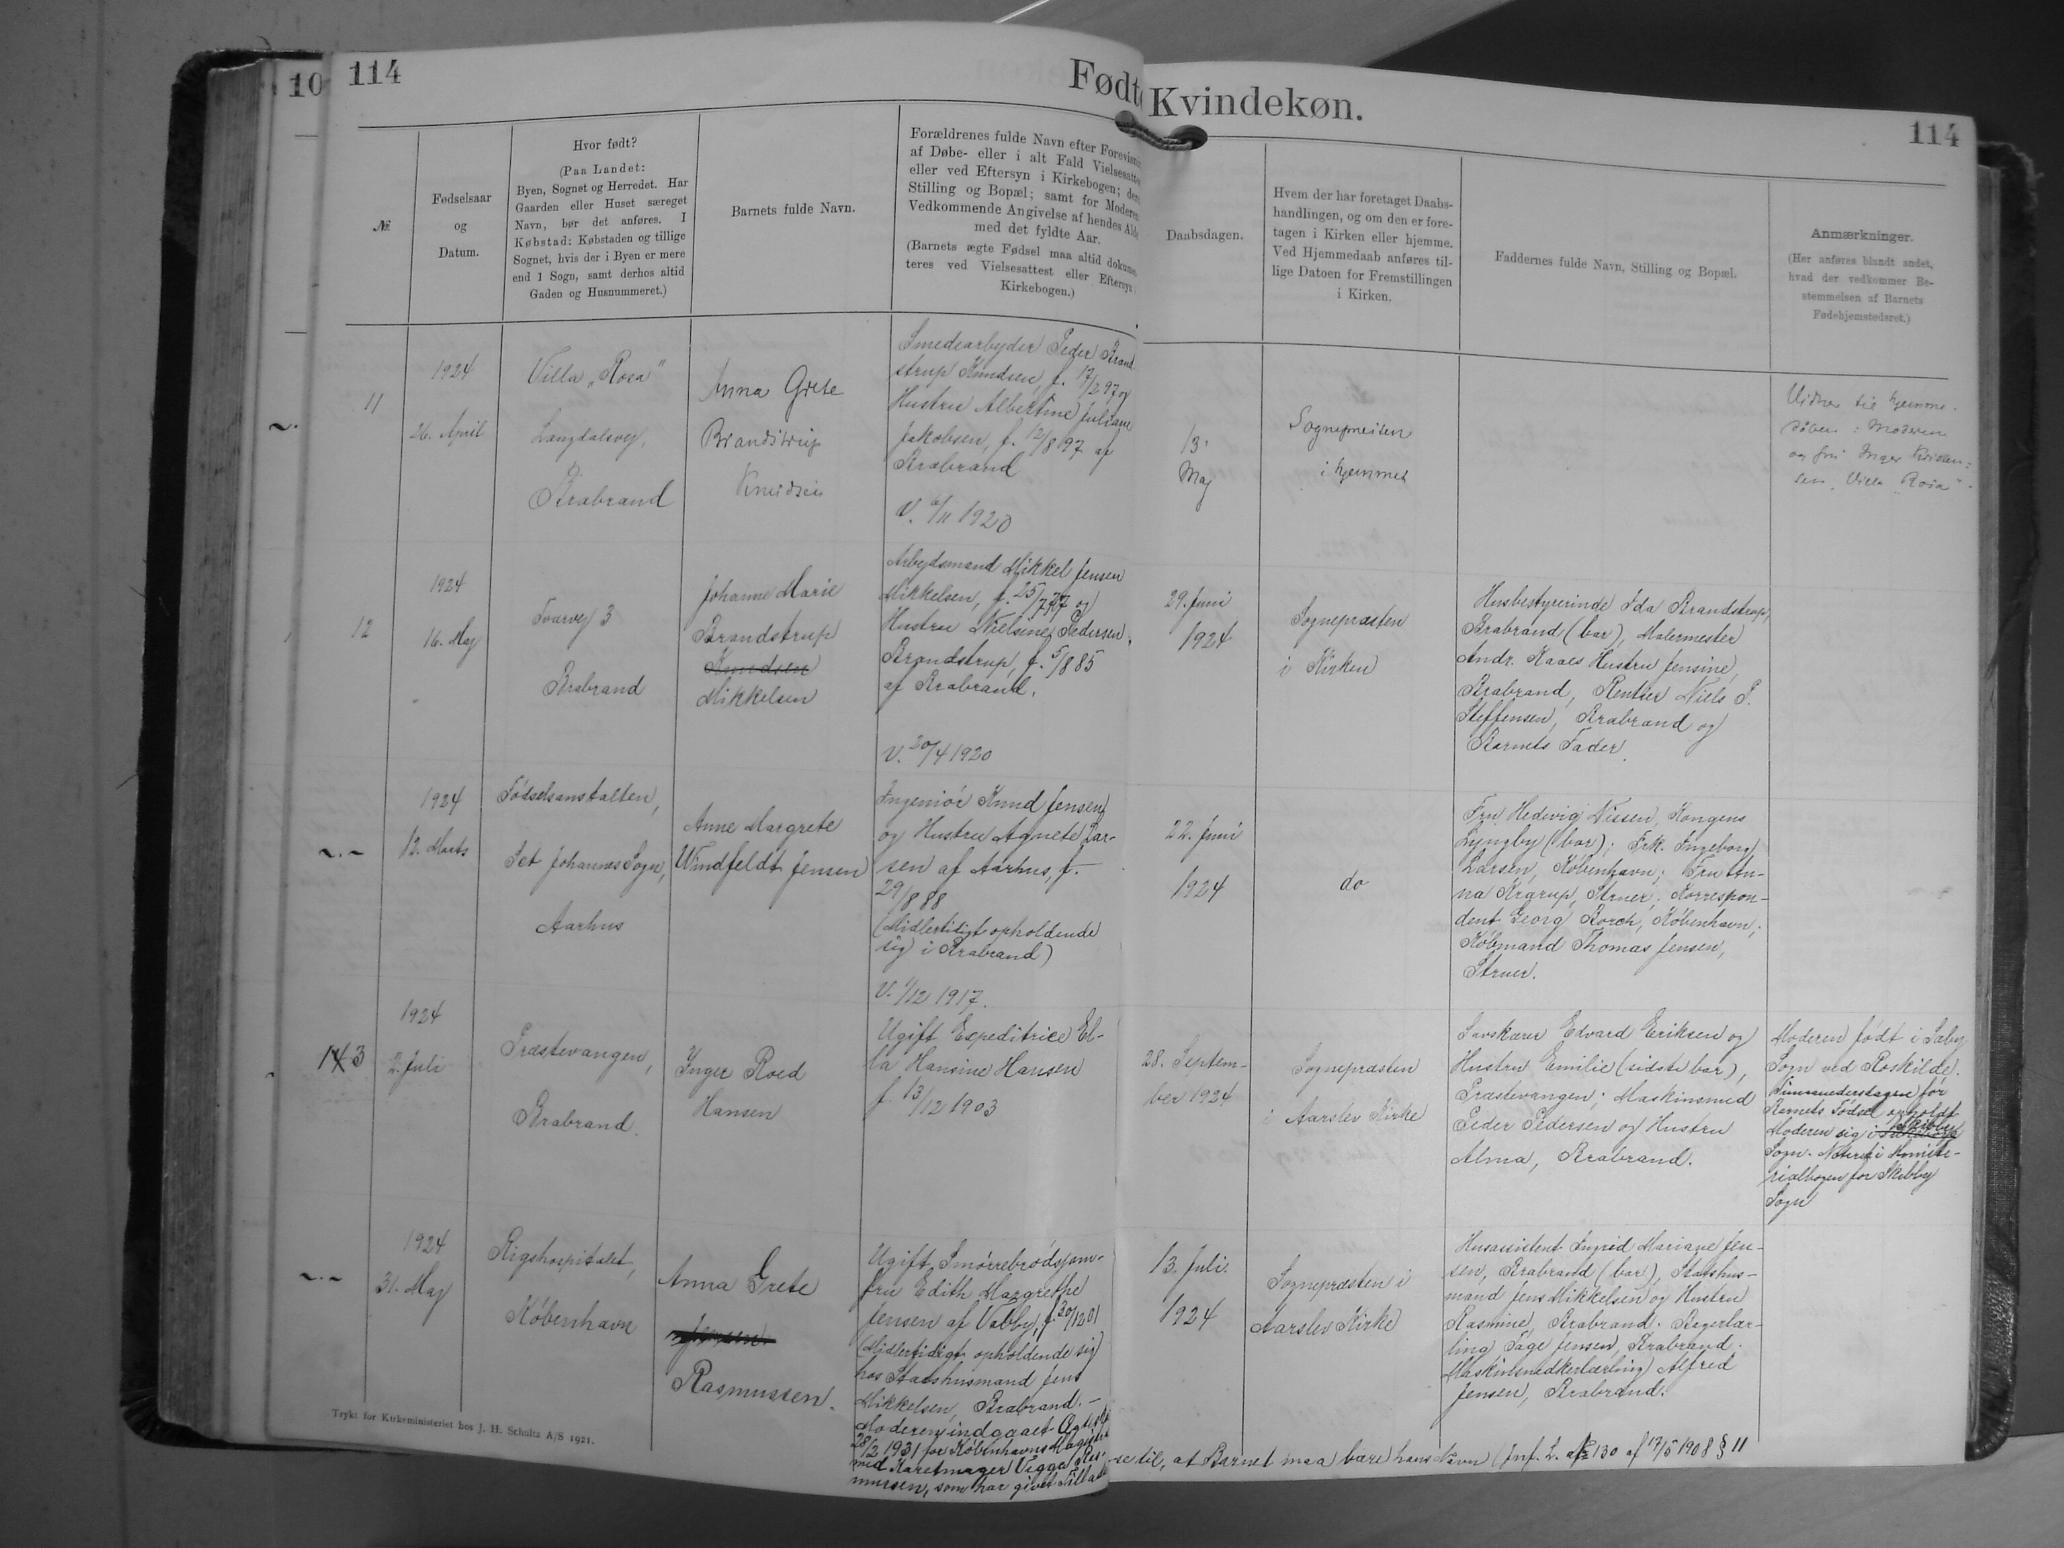 10
114
Født
Kvindekøn.
114
№
Fødselsaar
og
Datum.
Hvor født?
(Paa Landet:
Byen, Sognet og Herredet. Har
Gaarden eller Huset særeget
Navn, bør det anføres. I
Købstad: Købstaden og tillige
Sognet, hvis der i Byen er mere
end 1 Sogn, samt derhos altid
Gaden og Husnummeret.)
Barnets fulde Navn.
Forældrenes fulde Navn efter Forevisn
af Døbe- eller i alt Fald Vielsesattes
eller ved Eftersyn i Kirkebogen; dere
Stilling og Bopæl; samt for Moderen
Vedkommende Angivelse af hendes Alde
med det fyldte Aar.
(Barnets ægte Fødsel maa altid dokume
teres ved Vielsesattest eller Eftersyn
Kirkebogen.)
Daabsdagen.
Hvem der har foretaget Daabs-
handlingen, og om den er fore-
tagen i Kirken eller hjemme.
Ved Hjemmedaab anføres til-
lige Datoen for Fremstillingen
i Kirken.
Faddernes fulde Navn, Stilling og Bopæl.
Anmærkninger.
(Her anføres blandt andet,
hvad der vedkommer Be-
stemmelsen af Barnets
Fødehjemstedsret.)
11
1924
26. April
Villa „Rosa"
Langdalsvej,
Brabrand
Anna Grete
Brandstrup
Knudsen
Smedearbejder Peder Brand
strup Knudsen, f. 17/2 97 og
Hustru Albertine Juliane
Jakobsen, f. 12/8 97 af
Brabrand
V. 6/11 1920
13.
Maj
Sognepræsten
i hjemmet
Vidner til hjemme-
døben: Moderen
og fru Inger Kristen-
sen, Villa „Rosa".
12
1924
16. Maj
Toarvej 3
Brabrand
Johanne Marie
Brandstrup
Knudsen
Mikkelsen
Arbejdsmand Mikkel Jensen
Mikkelsen, f. 25/7 77 og
Hustru Nielsine Pedersen
Brandstrup, f. 5/8 85
af Brabrand.
V. 20/4 1920
29. Juni
1924
Sognepræsten
i Kirken
Husbestyrerinde Ida Brandstrup,
Brabrand (bar), Malermester
Andr. Kaaes Hustru Jensine,
Brabrand, Rentier Niels P.
Steffensen, Brabrand og
Barnets Fader.
~.~
1924
12. Marts
Fødselsanstalten,
Sct Johannes Sogn,
Aarhus
Anne Margrete
Windfeldt Jensen
Ingeniør Knud Jensen
og Hustru Agnete Lar-
sen af Aarhus, f.
29/8 88
(Midlertidigt opholdende
sig i Brabrand)
V. 1/12 1917.
22. Juni
1924
do
Fru Hedevig Nissen, Kongens
Lyngby (bar); Frk. Ingeborg
Larsen, København; Fru An-
na Krarup, Struer; Korrespon-
dent Georg Borch, København;
Købmand Thomas Jensen,
Struer.
14 3
1924
2. Juli
Præstevangen,
Brabrand.
Inger Roed
Hansen
Ugift Expeditrice El-
la Hansine Hansen
f. 13/12 1903
28. Septem-
ber 1924
Sognepræsten
i Aarslev Kirke
Savskærer Edvard Eriksen og
Hustru Emilie (sidste bar),
Præstevangen; Maskinsmed
Peder Pedersen og Hustru
Alma, Brabrand.
Moderen født i Saaby
Sogn ved Roskilde.
Timaanedersdagen før
Barnets Fødsel opholdt
Moderen sig i Skibby
Sogn. Noteret i Ministe-
rialbogen for Skibby
Sogn
~.~
1924
31. Maj
Rigshospitalet,
København
Anna Grete
Jensen
Rasmussen.
Ugift Smørrebrødsjom-
fru Edith Margrethe
Jensen af Valby, f. 20/12 01
(Midlertidigt opholdende sig
hos Statshusmand Jens
Mikkelsen, Brabrand. -
Moderen indgaaet Ægtesk
28/2 1931 for Københavns Magistrat
med Karetmager Viggo Ras-
mussen, som har givet Tilladel
se til, at Barnet maa bære hans Navn (Jnf. L. Nr 130 af 17/5 1908 § 11
13. Juli.
1924
Sognepræsten i
Aarslev Kirke
Husassistent Ingrid Mariane Jen-
sen, Brabrand (bar), Statshus-
mand Jens Mikkelsen og Hustru
Rasmine, Brabrand. Bagerlær-
ling Tage Jensen, Brabrand.
Maskinsnedkerlærling Alfred
Jensen, Brabrand.
Trykt for Kirkeministeriet hos J. H. Schultz A/S 1921.